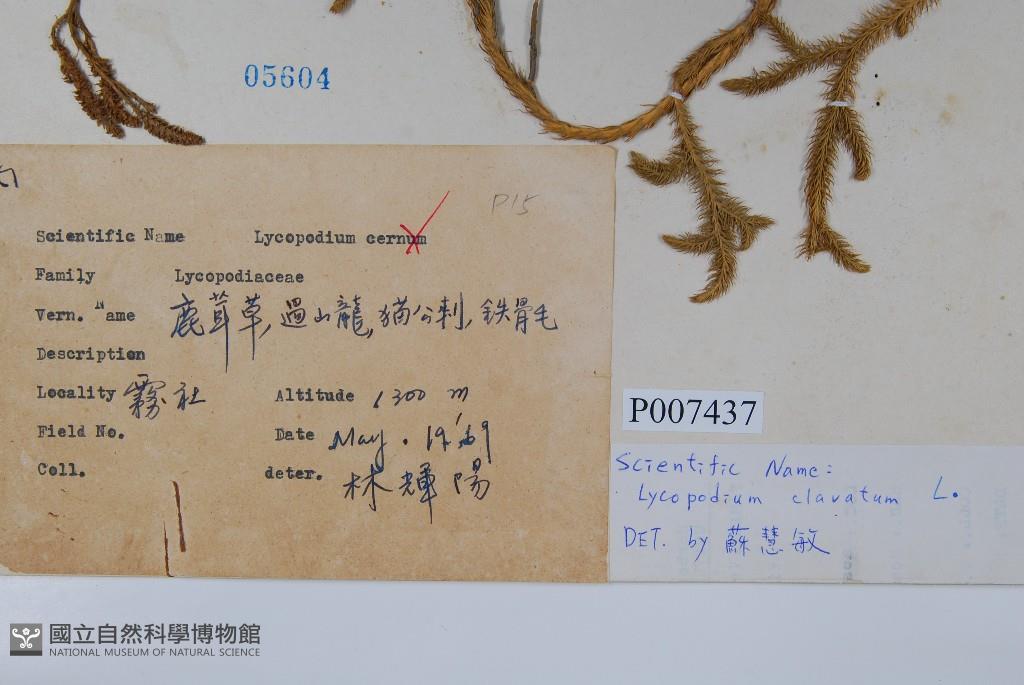 05604
P15
Scientific Name Lycopodium cernum
Family Lycopodiaceae
Vern. Name 鹿茸草, 過山龍, 猫公刺, 鉄骨毛
Description
Locality 霧社 Altitude 1300 m
Field No. Date May. 19 '69
Coll. deter. 林輝陽
P007437
Scientific Name:
Lycopodium clavatum L.
DET. by 蘇慧敏
國立自然科學博物館
NATIONAL MUSEUM OF NATURAL SCIENCE